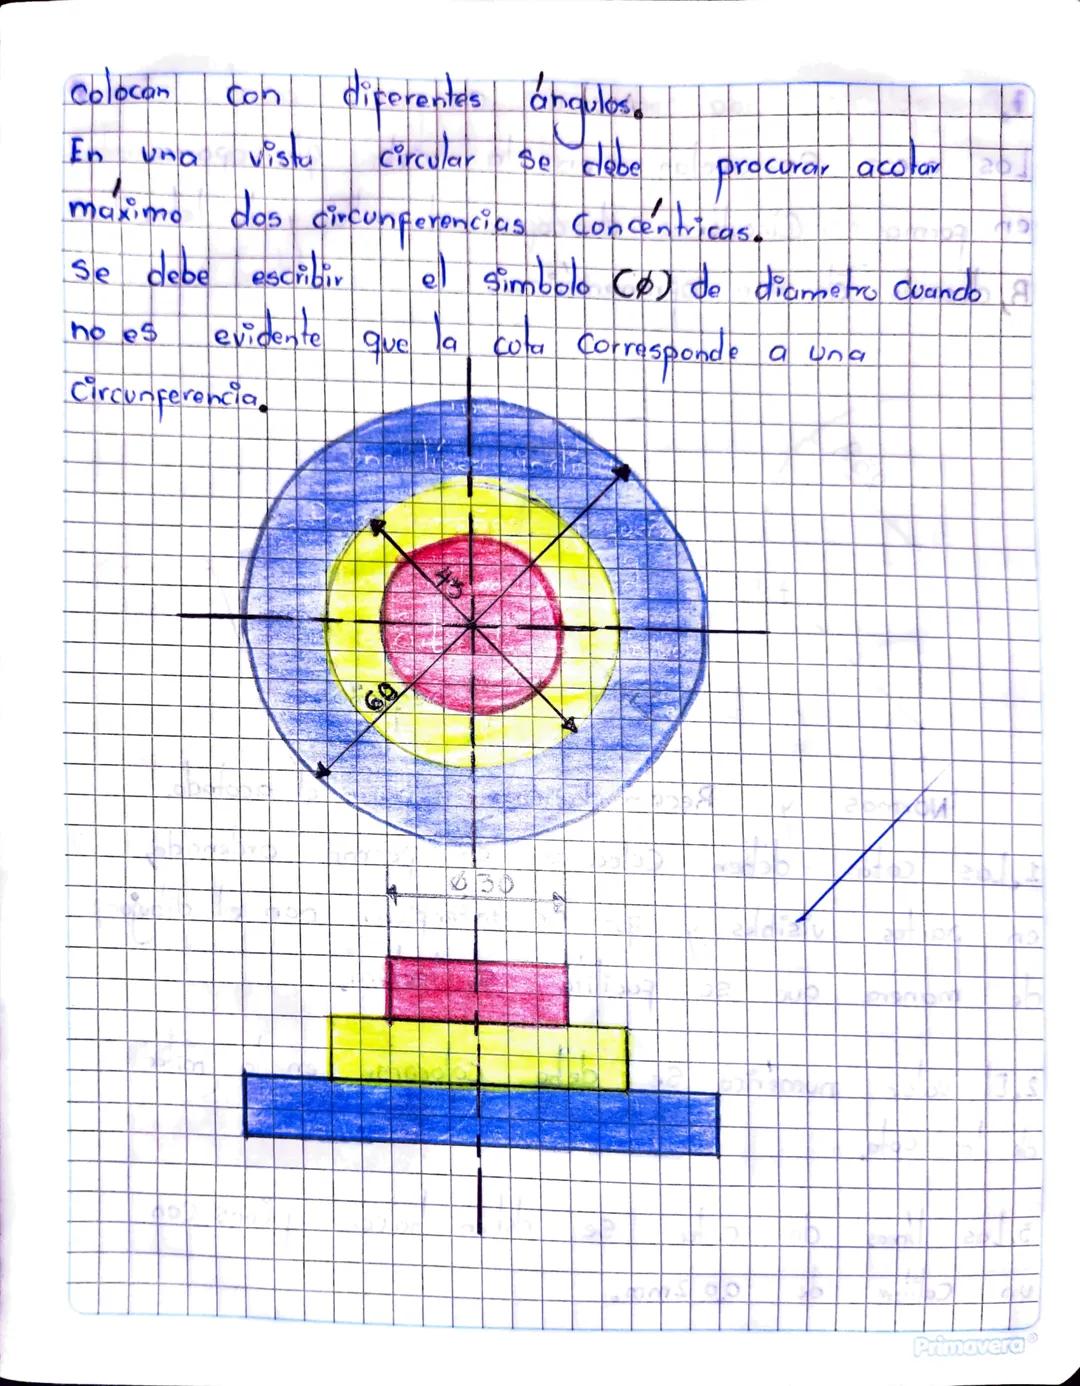 colocan con diferentes ángulos.
En una vista circular se debe procurar acotar
máximo dos circunferencias concéntricas.
se debe escribir el simbolo (Ø) de diametro cuando
no es evidente que la cota corresponde a una
circunferencia.
45
60
Ø 30
Primavera®